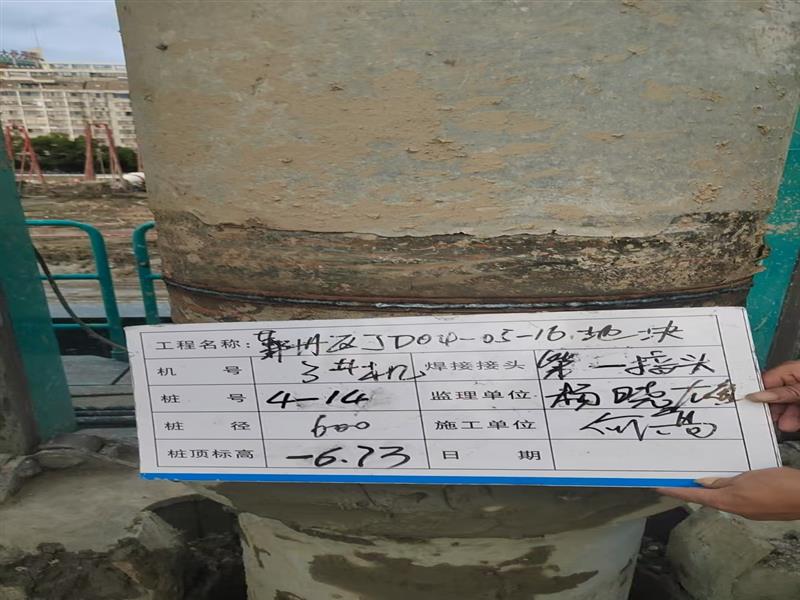 工程名称: 鄞州区JD04-05-16地块
机 号 3#机 焊接接头 第一接头
桩 号 4-14 监理单位 杨晓
桩 径 600 施工单位
桩顶标高 -6.73 日 期